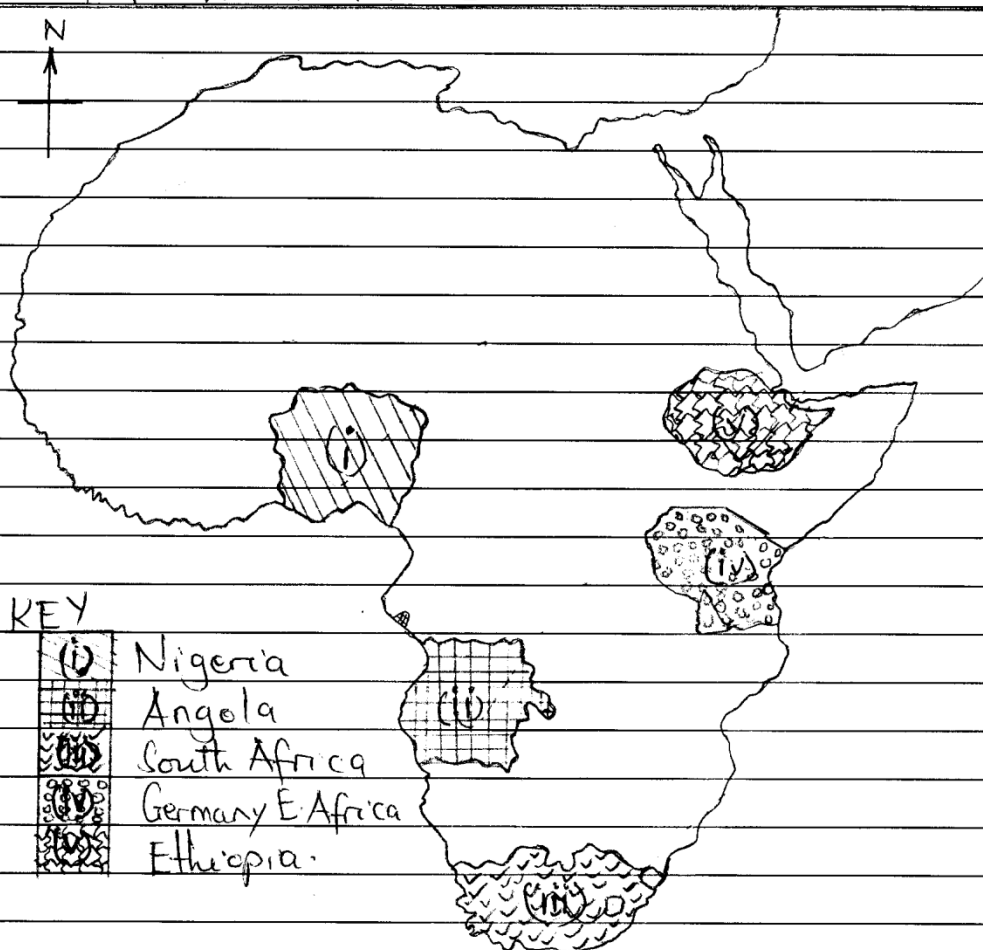 N
(i)
(v)
(iv)
KEY
(i) Nigeria
(ii) Angola
(iii) South Africa
(iv) Germany E. Africa
(v) Ethiopia.
(ii)
(iii)